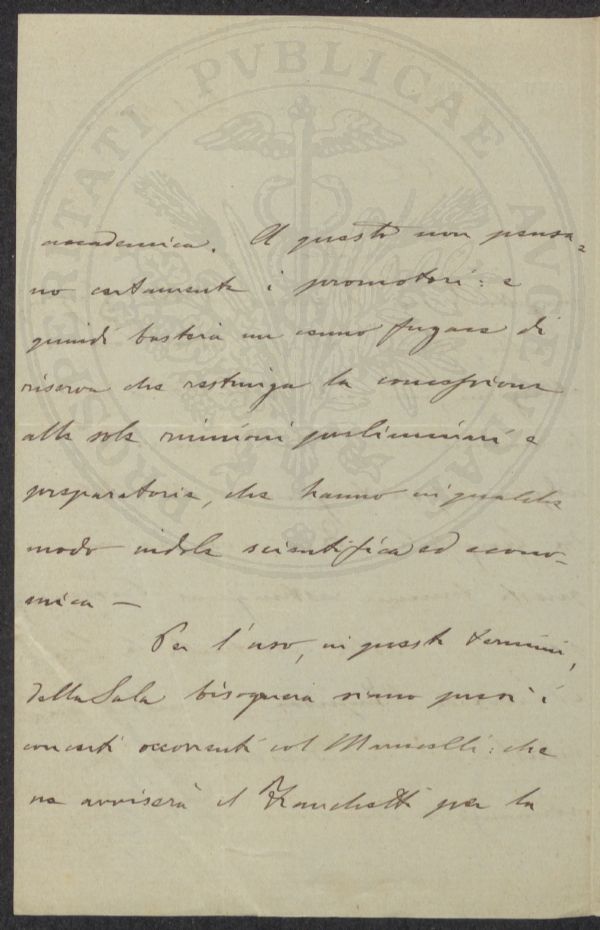 PROSPERITATI PVBLICAE AVGENDAE
accademica. A questo non pensa=
no certamente i promotori: e
quindi basterà un cenno fugace di
riserva che restringa la concessione
alle sole riunioni preliminari e
preparatorie, che hanno in qualche
modo indole scientifica ed econo-
mica —
Per l'uso, in questi termini,
della Sala bisognerà sieno presi i
concerti occorrenti col : che
ne avviserà il Franchetti per la